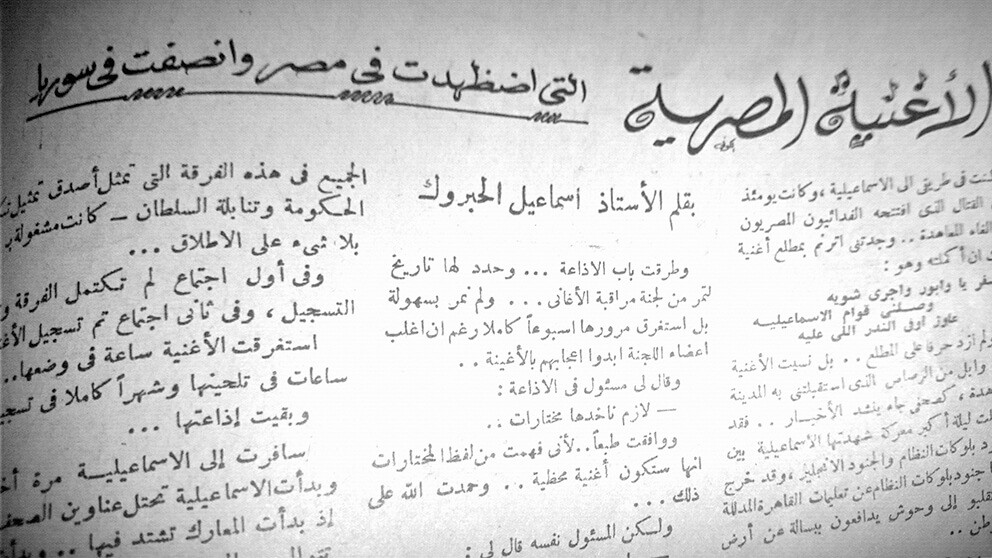 الأغنية المصرية
التى اضطهدت فى مصر وانصفت فى سوريا
بقلم الأستاذ اسماعيل الحبروك
فى طريقى الى الاسماعيلية ، وكانت يومئذ
القتال الذى افتتحه الفدائيون المصريون
الغاء المعاهدة .. وجدتنى اترنم بمطلع أغنية
ان أكمله وهو :
سفر يا وابور واجرى شويه
وصلنى قوام الاسماعيليه
عاوز اوفى الندر اللى عليه
ولم ازد حرفا على المطلع .. بل نسيت الأغنية
وابل من الرصاص الذى استقبلتنى به المدينة
، كصحفى جاء ينشد الأخبار .. فقد
ليلة أكبر معركة شهدتها الاسماعيلية بين
بلوكات النظام والجنود الانجليز ، وقد خرج
جنود بلوكات النظام عن تعليمات القاهرة المدللة
إلى وحوش يدافعون ببسالة عن أرض
وطرقت باب الاذاعة ... وحدد لها تاريخ
لتمر من لجنة مراقبة الأغانى ... ولم تمر بسهولة
بل استغرق مرورها اسبوعاً كاملا رغم ان اغلب
اعضاء اللجنة ابدوا اعجابهم بالأغنية ..
وقال لى مسئول فى الاذاعة :
— لازم ناخدها مختارات ..
ووافقت طبعاً .. لأنى فهمت من لفظ المختارات
انها ستكون أغنية محظية .. وحمدت الله على
ذلك ...
ولكن المسئول نفسه قال لى :
الجميع فى هذه الفرقة التى تمثل أصدق تمثيل
الحكومة وتنابلة السلطان — كانت مشغولة
بلا شىء على الاطلاق ...
وفى أول اجتماع لم تكتمل الفرقة
التسجيل ، وفى ثانى اجتماع تم تسجيل
استغرقت الأغنية ساعة فى وضعها ..
ساعات فى تلحينها وشهراً كاملا فى
وبقيت إذاعتها ...
سافرت إلى الاسماعيلية مرة
وبدأت الاسماعيلية تحتل عناوين
إذ بدأت المعارك تشتد فيها ..